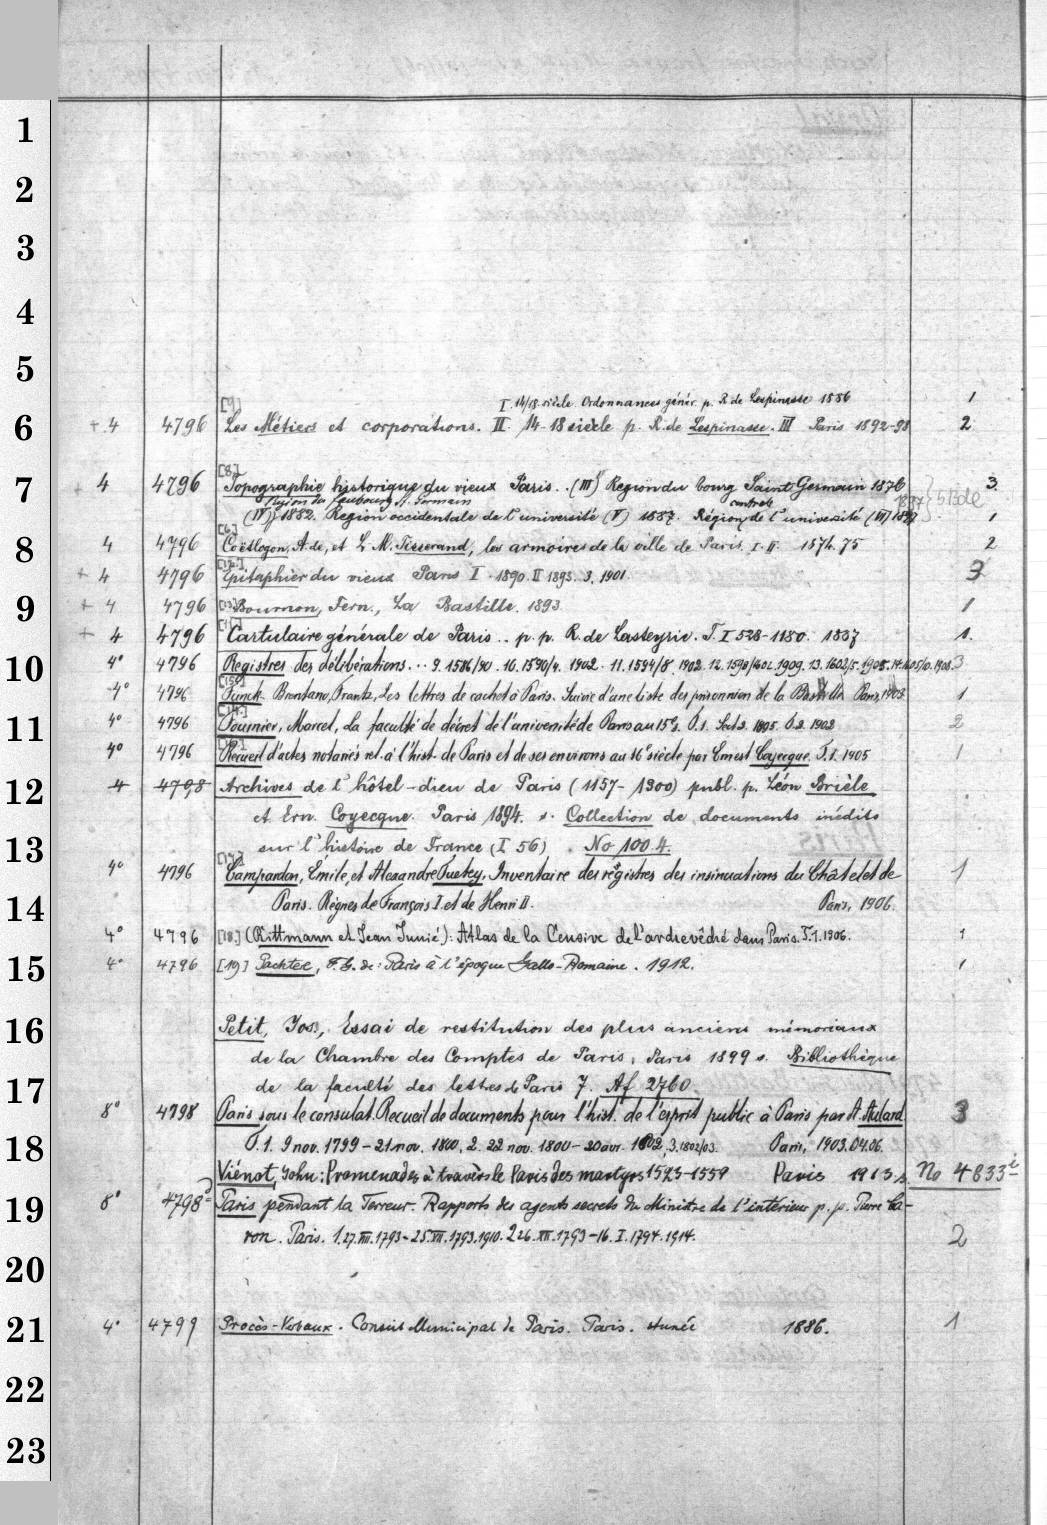 1
2
3
4
5
[9] I. 14/18. siècle. Ordonnances génér. p. R. de Lespinasse 1886 1
6 +. 4 4796 Les Métiers et corporations. II. 14-18 siècle p. R. de Lespinasse. III Paris 1892-98 2
[8]
7 4 4796 Topographie historique du vieux Paris. (III) Region du bourg Saint Germain 1876 3.
Region du faubourg St. Germain central 1887 513de
(IV) 1882. Region occidentale de l'université (V) 1887. Région de l'université (VI) 1897 1
[6]
8 4 4796 Coëtlogon, A. de, et L. M. Tisserand, les armoires de la ville de Paris. I-II. 1874.75 2
[12.]
+ 4 4796 Epitaphier du vieux Paris I. 1890. II 1893. 3. 1901. 3
9 + 4 4796 [13] Bournon, Fern., La Bastille. 1893 1
[11]
+ 4 4796 Cartulaire générale de Paris.. p. p. R. de Lasteyrie. T. I 528-1180. 1887 1.
10 4° 4796 Registres des délibérations... 9. 1586/90. 10. 1590/4. 1902. 11. 1594/8 1902. 12. 1598/1601. 1909. 13. 1602/5. 1905. 14. 1605/10. 1908. 3
[15.]
4° 4796 Funck-Brentano, Frantz, Les lettres de cachet à Paris. Suivie d'une liste des prisonniers de la Bastille Paris, 1903 1
[14.]
11 4° 4796 Fournier, Marcel, La faculté de décret de l'université de Paris au 15e s. T. 1. Sect 2. 1895. T. 2. 1902 2
4° 4796 Recueil d'actes notariés rel. à l'hist. de Paris et de ses environs au 16e siècle par Ernest Coyecque. T. 1. 1905 1
12 4 4798 Archives de l'hôtel-dieu de Paris (1157-1300) publ. p. Léon Brièle
et Ern. Coyecque. Paris 1894. s. Collection de documents inédits
13 sur l'histoire de France (I 56) . No 100.4.
[17.]
4° 4796 Campardon, Émile, et Alexandre Tuetey, Inventaire des régistres des insinuations du Châtelet de 1
14 Paris. Règnes de François I. et de Henri II. Paris, 1906.
4° 4796 [18.] (Rittmann et Jean Junié): Atlas de la Censive de l'archevêché dans Paris. T. 1. 1906. 1
15 4° 4796 [19] Pachtere, F. G. de: Paris à l'époque Gallo-Romaine. 1912. 1
16 Petit, Jos., Essai de restitution des plus anciens mémoriaux
de la Chambre des Comptes de Paris, Paris 1899 s. Bibliothèque
17 de la faculté des lettres de Paris 7. Af 2760
8° 4798 Paris sous le consulat. Recueil de documents pour l'hist. de l'esprit public à Paris par A. Aulard 3
18 T. 1. 9 nov. 1799-21 nov. 1800, 2. 22 nov. 1800-20 avr. 1802, 3. 1802/03. Paris, 1903.04.06.
Viénot, John: Promenades à travers le Paris des martyrs 1523-1559 Paris 1913 s. No 4833i
19 8° 4798a Paris pendant la Terreur. Rapports des agents secrets du Ministre de l'intérieur p. p. Pierre Ca-
ron. Paris. 1. 27. VIII. 1793-25. XII. 1793. 1910. 2 26. XII. 1793-16. I. 1794. 1914. 2
20
21 4° 4799 Procès-Verbaux. Conseil Municipal de Paris. Paris. Année 1886. 1
22
23